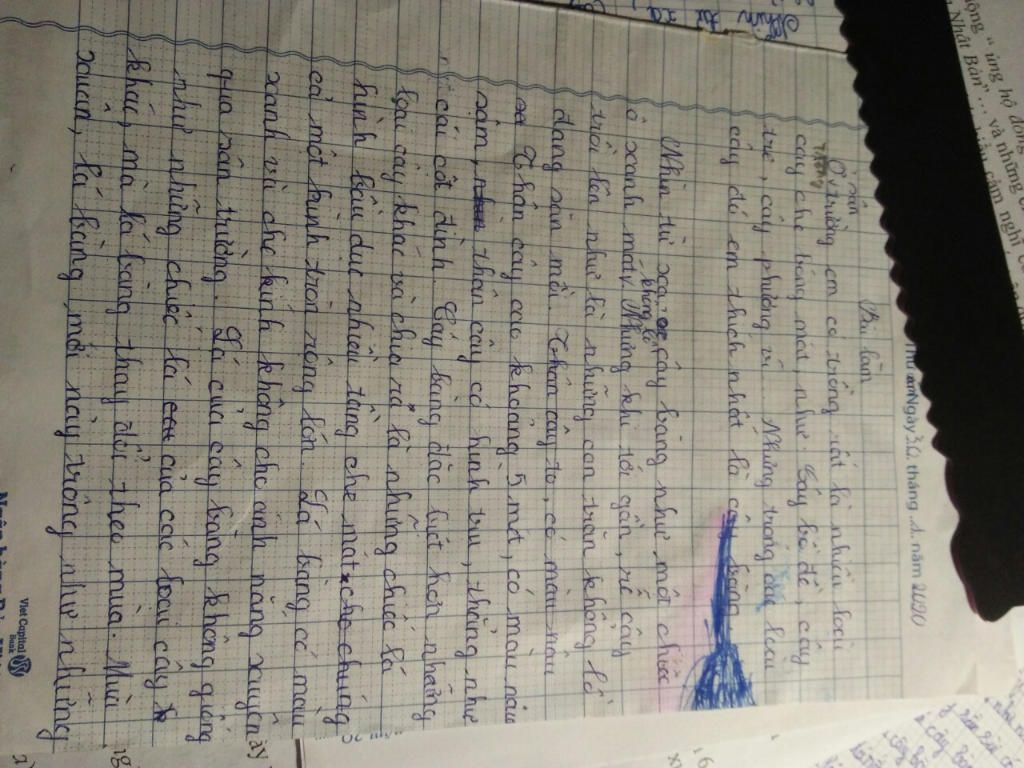 Thứ Ngày 30, tháng 1.. năm 2020
Bài làm
sân
Ở trường em có trồng rất là nhiều loài
cây che bóng mát, như: Cây bồ đề, cây
tre, cây phượng vĩ... Nhưng trong các loài
cây đó em thích nhất là cây bàng
Nhìn từ xa, cây bàng như một chiếc
ô xanh mát, Nhưng khi tới gần, rễ cây
khổng lồ
trồi lên như là những con trăn khổng lồ
đang săn mồi. Thân cây to, có màu nâu
Thân cây cao khoảng 5 mét, có màu nâu
sậm, thân cây có hình trụ, thẳng như
cái cột đình. Cây bàng đặc biệt hơn những
loại cây khác vì chưa ra là những chiếc lá
hình bầu dục nhiều tầng che mát cho chúng
cả một hình tròn rộng lớn. Lá bàng có màu
xanh vì che kính không cho ánh nắng xuyên
qua sân trường. Lá của cây bàng không giống
như những chiếc lá của các loại cây k
khác, mà lá bàng thay đổi theo mùa. Mùa
xuân, lá bàng mới nảy trông như những
Viet Capital
Bank
động "ủng hộ đồng
Nhật Bản"... và những
cảm nghĩ